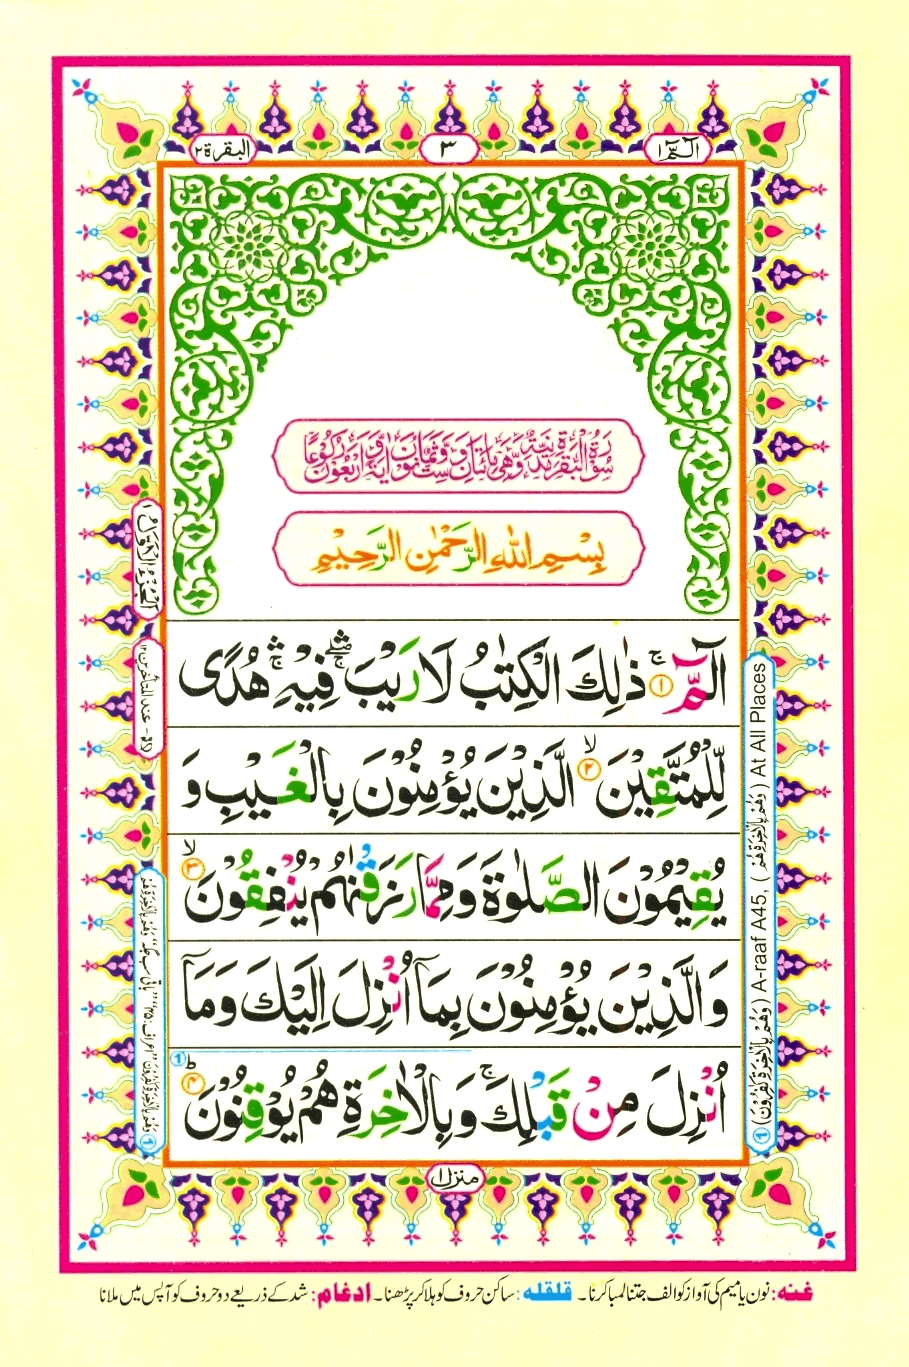 الٓمّٓ ١
٣
البقرة ٢
سُوْرَةُ الْبَقَرَةِ مَدَنِيَّةٌ وَّهِيَ مِائَتَانِ وَسِتٌّ وَّثَمَانُوْنَ اٰيَةً وَّاَرْبَعُوْنَ رُكُوْعًا
بِسْمِ اللّٰهِ الرَّحْمٰنِ الرَّحِيْمِ
الٓمّٓ ۚ ١ ذٰلِكَ الْكِتٰبُ لَا رَيْبَ ۛۚۖ فِيْهِ ۛۚ هُدًى
لِّلْمُتَّقِيْنَ ۙ ٢ الَّذِيْنَ يُؤْمِنُوْنَ بِالْغَيْبِ وَ
يُقِيْمُوْنَ الصَّلٰوةَ وَمِمَّا رَزَقْنٰهُمْ يُنْفِقُوْنَ ۙ ٣
وَالَّذِيْنَ يُؤْمِنُوْنَ بِمَاۤ اُنْزِلَ اِلَيْكَ وَمَاۤ
اُنْزِلَ مِنْ قَبْلِكَ ۚ وَبِالْاٰخِرَةِ هُمْ يُوْقِنُوْنَ ؕ ٤
① (وَهُمْ بِالْاٰخِرَةِ كٰفِرُوْنَ) A-raaf A45, (وَهُمْ بِالْاٰخِرَةِ هُمْ) At All Places
منزل ١
غنه: نون یا میم کی آواز کو الف جتنا لمبا کرنا۔ قلقله: ساکن حروف کو ہلا کر پڑھنا۔ ادغام: شد کے ذریعے دو حروف کو آپس میں ملانا